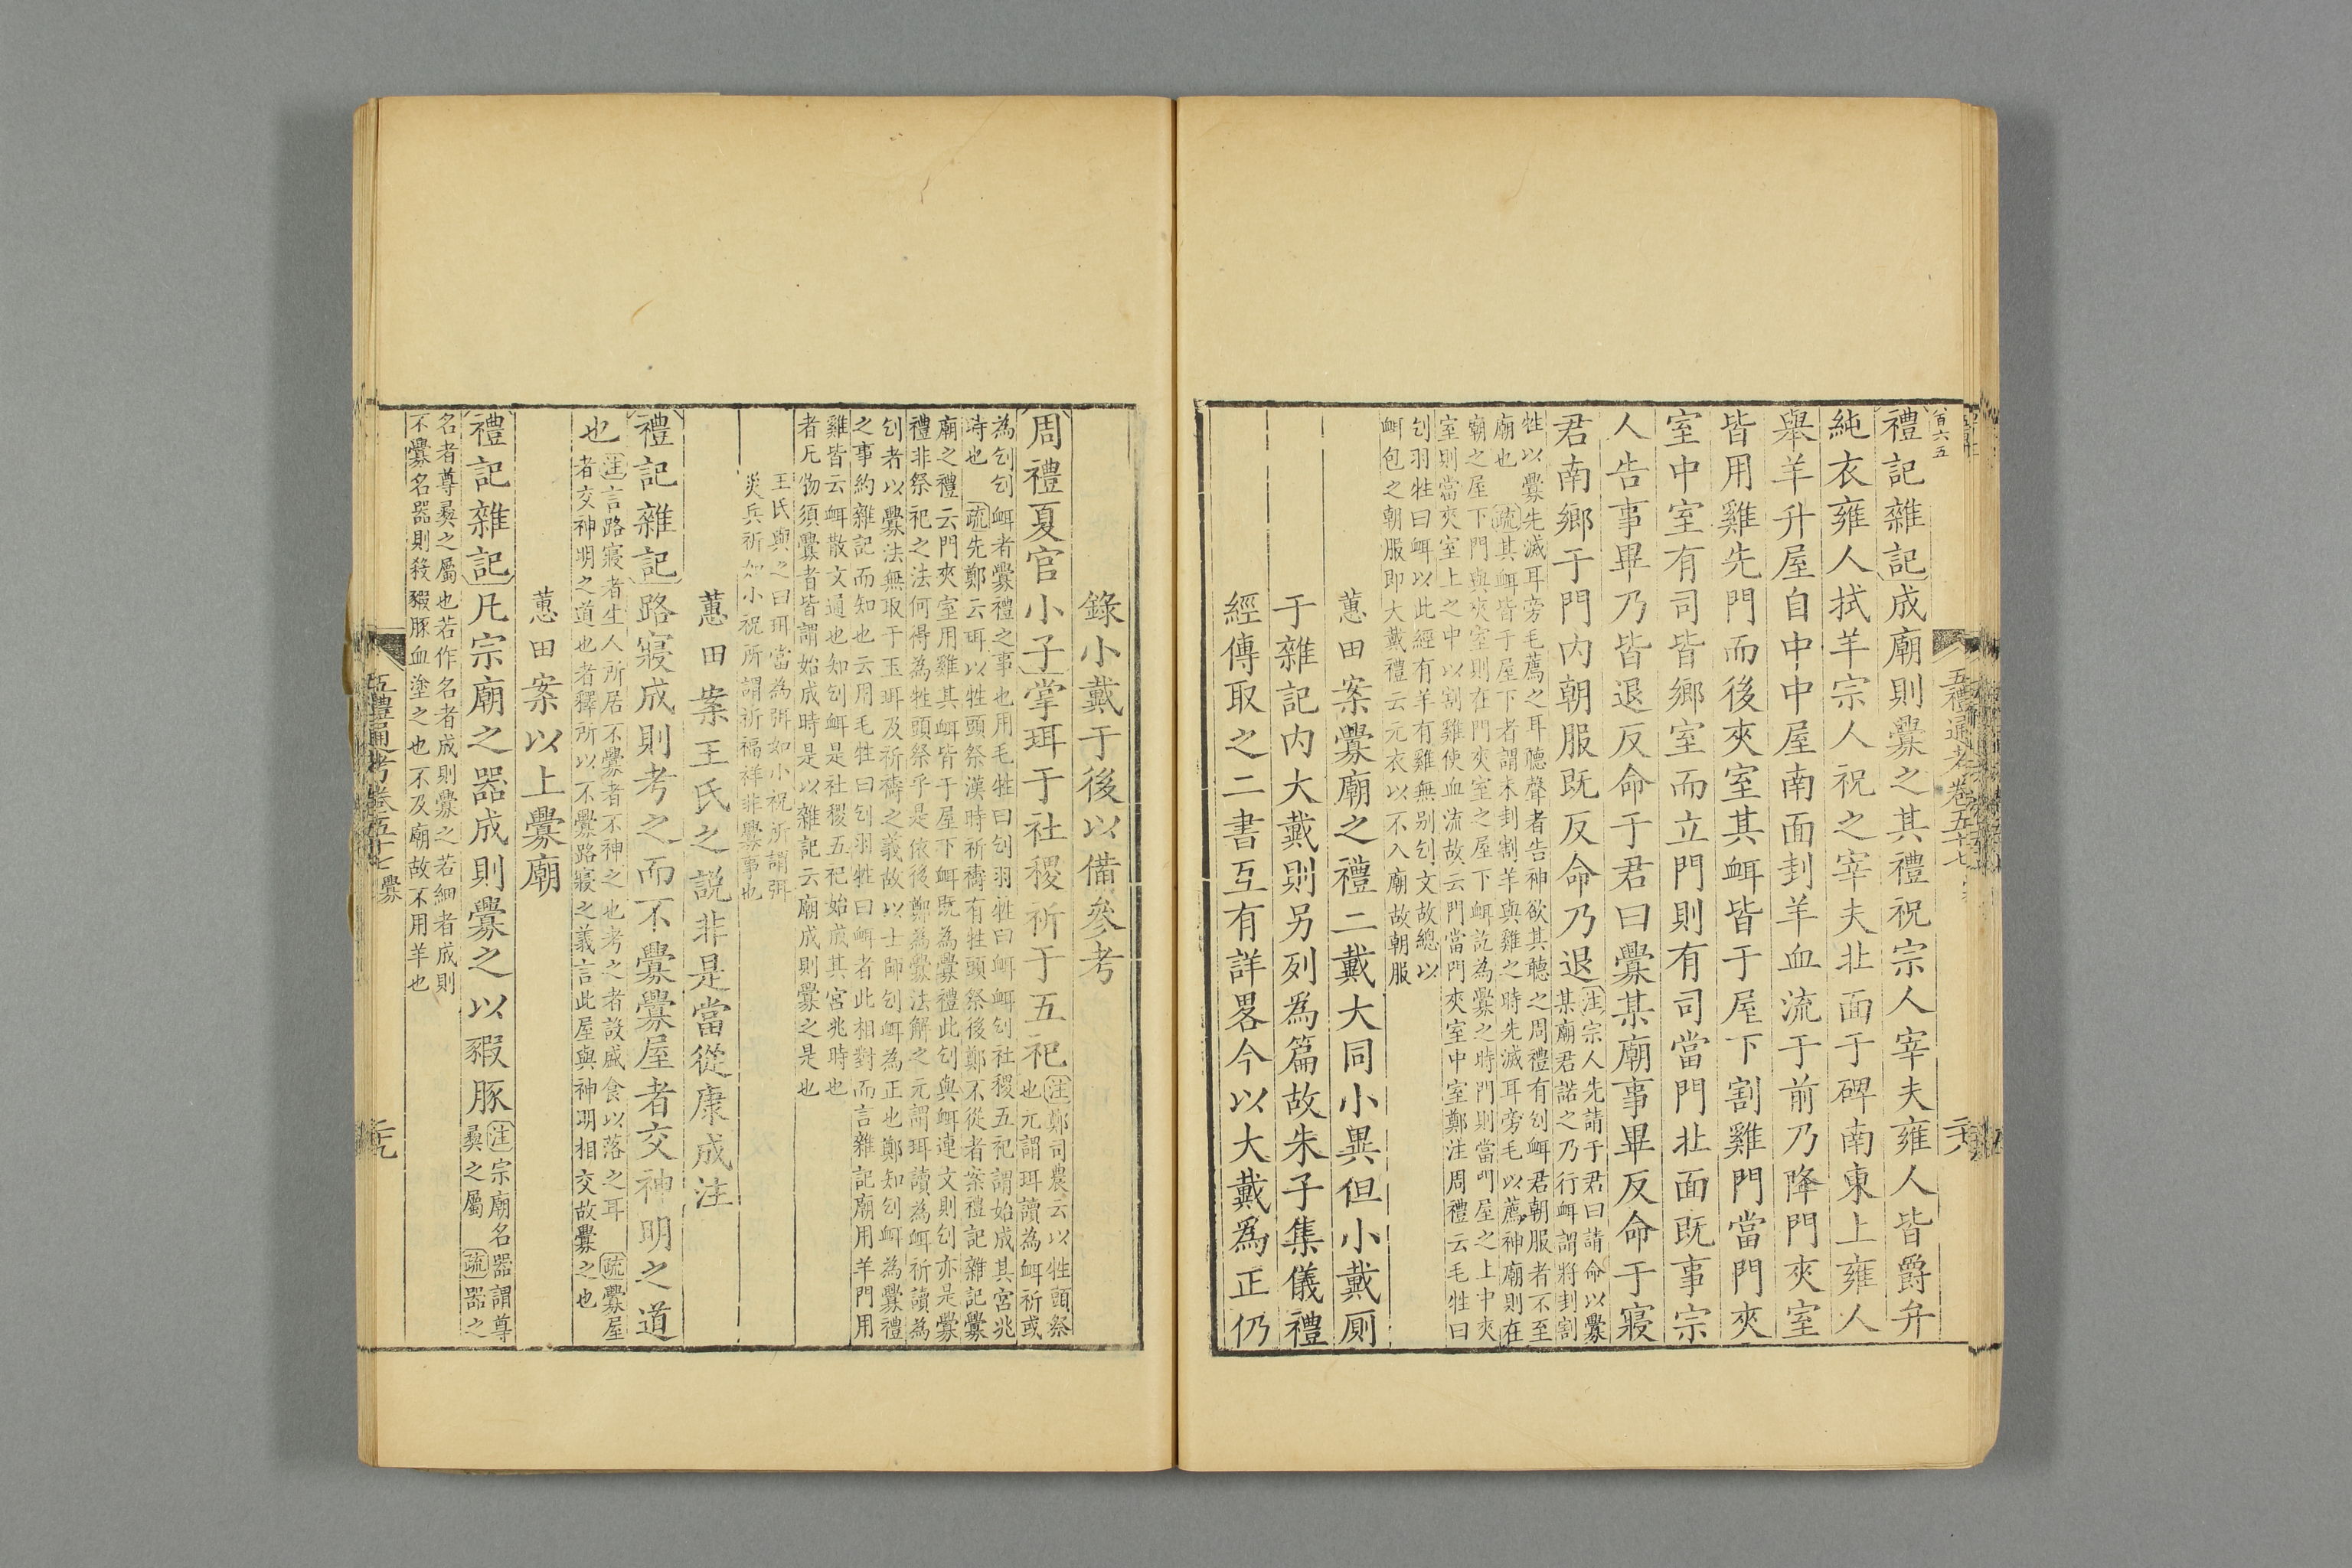 禮記雜記成廟則釁之其禮祝宗人宰夫雍人皆爵弁
純衣雍人拭羊宗人祝之宰夫北面于碑南東上雍人
舉羊升屋自中中屋南面刲羊血流于前乃降門夾室
皆用雞先門而後夾室其衈皆于屋下割雞門當門夾
室中室有司皆鄉室而立門則有司當門北面既事宗
人告事畢乃皆退反命于君曰釁某廟事畢反命于寢
君南鄉于門內朝服既反命乃退
注宗人先請于君曰請命以釁
某廟君諾之乃行衈謂將刲割
牲以釁先滅耳旁毛薦之耳聽聲者告神欲其聽之周禮有刉衈君朝服者不至
廟也 疏其衈皆于屋下者謂未刲割羊與雞之時先滅耳旁毛以薦神廟則在
廟之屋下門與夾室則在門夾室之屋下衈訖為釁之時門則當門屋之上中夾
室則當夾室上之中以割雞使血流故云門當門夾室中室鄭注周禮云毛牲曰
刉羽牲曰衈以此經有羊有雞無別刉文故總以
衈包之朝服即大戴禮云元衣以不入廟故朝服
蕙田案釁廟之禮二戴大同小異但小戴厠
于雜記內大戴則另列爲篇故朱子集儀禮
經傳取之二書互有詳畧今以大戴爲正仍
五禮通考卷五十七
錄小戴于後以備參考
周禮夏官小子掌珥于社稷祈于五祀
注鄭司農云以牲頭祭
也元謂珥讀為衈祈或
為刉刉衈者釁禮之事也用毛牲曰刉羽牲曰衈衈刉社稷五祀謂始成其宮兆
時也 疏先鄭云珥以牲頭祭漢時祈禱有牲頭祭後鄭不從者案禮記雜記釁
廟之禮云門夾室用雞其衈皆于屋下衈既為釁禮此刉與衈連文則刉亦是釁
禮非祭祀之法何得為牲頭祭乎是依後鄭為釁法解之元謂珥讀為衈祈讀為
刉者以釁法無取于玉珥及祈禱之義故以士師刉衈為正也鄭知刉衈為釁禮
之事約雜記而知也云用毛牲曰刉羽牲曰衈者此相對而言雜記廟用羊門用
雞皆云衈散文通也知刉衈是社稷五祀始成其宮兆時也
者凡物須釁者皆謂始成時是以雜記云廟成則釁之是也
王氏與之曰珥當為弭如小祝所謂弭
災兵祈如小祝所謂祈福祥非釁事也
蕙田案王氏之說非是當從康成注
禮記雜記路寢成則考之而不釁釁屋者交神明之道
也
注言路寢者生人所居不釁者不神之也考之者設盛食以落之耳 疏釁屋
者交神明之道也者釋所以不釁路寢之義言此屋與神明相交故釁之也
蕙田案以上釁廟
禮記雜記凡宗廟之器成則釁之以豭豚
注宗廟名器謂尊
彝之屬 疏器之
名者尊彝之屬也若作名者成則釁之若細者成則
不釁名器則殺豭豚血塗之也不及廟故不用羊也
五禮通考卷五十七 釁